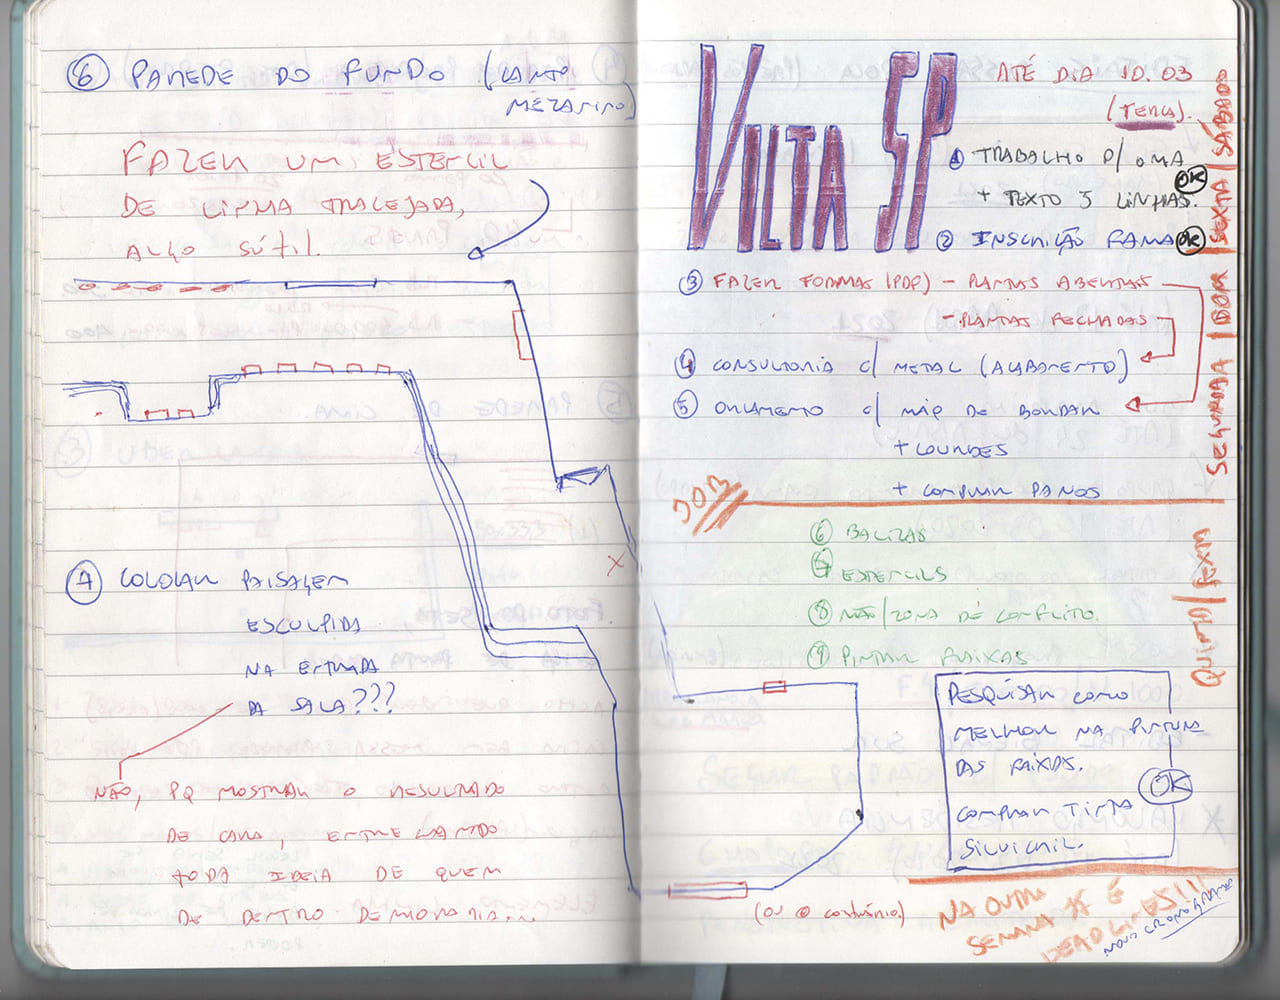 ⑥ PAREDE DO FUNDO (CANTO
MEZANINO)
FAZER UM ESTÊNCIL
DE LINHA TRACEJADA,
ALGO SÚTIL.
⑦ COLOCAR PAISAGEM
ESCULPIDA
NA ENTRADA
DA SALA???
NÃO, PQ MOSTRAR O RESULTADO
DE CARA, ENTREGANDO
TODA IDEIA DE QUEM
DE DENTRO
VOLTA SP
ATÉ DIA 10.03
(TERÇA).
① TRABALHO P/ OMA
+ TEXTO 5 LINHAS. OK
② INSCRIÇÃO FAMA OK
③ FAZER FORMAS (PDF) - PLANTAS ABERTAS
- PLANTAS FECHADAS
④ CONSULTORIA C/ METAL (ACABAMENTO)
⑤ ORÇAMENTO C/ MÁQ DE BORDAR
+ LOURDES
+ COMPRAR PANOS
SEGUNDA / DOM / SEXTA / SÁBADO
DOM
⑥ BALIZAS
⑦ ESTENCILS
⑧ NÃO/ZONA DE CONFLITO.
⑨ PINTAR FAIXAS
QUINTA / SEXTA
PESQUISAR COMO
MELHOR NA PINTURA
DAS FAIXAS.
OK
COMPRAR TINTA
SILVICHIL.
(OU O CONTRÁRIO)
NA OUTRA
SEMANA JÁ É
DEADLINES!!
NOVO CRONOGRAMA